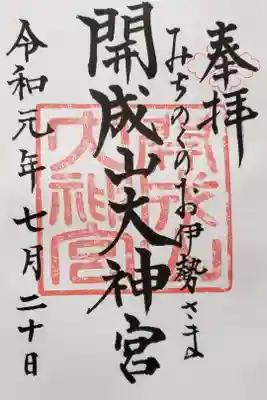 奉拝
みちのくのお伊勢さま
開成山大神宮
令和元年七月二十日
開成山大神宮